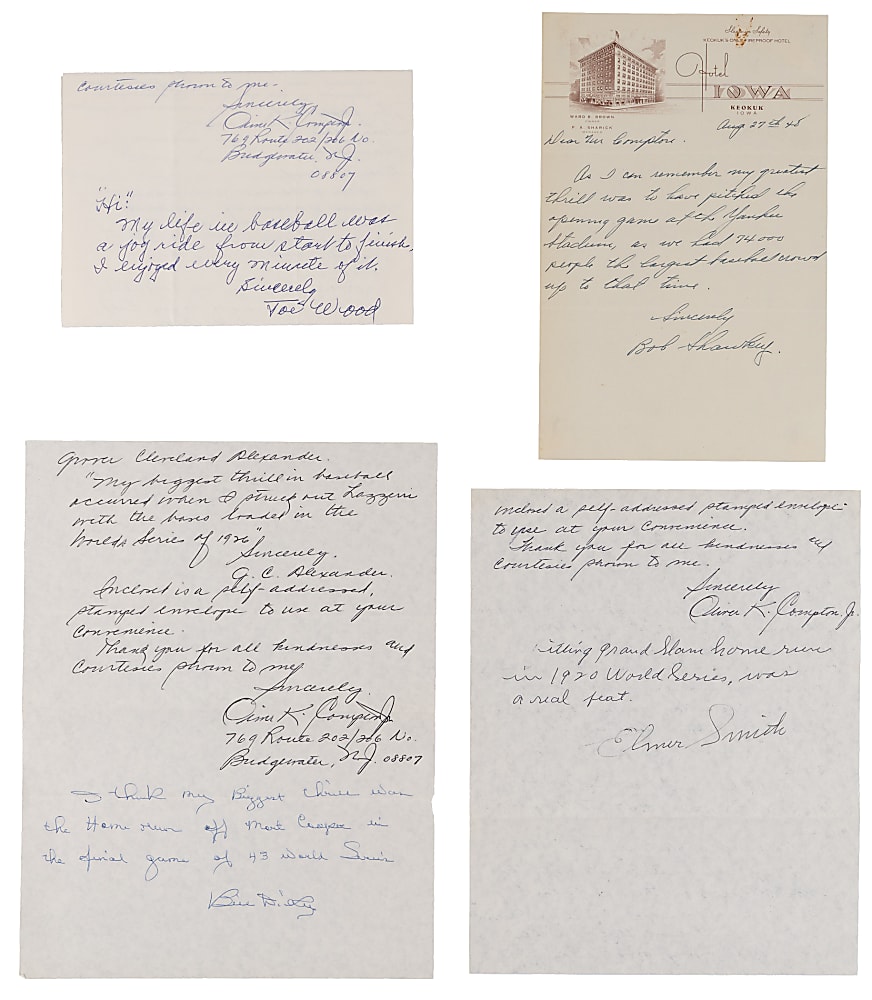 courtesies shown to me.
Sincerely,
Aime K. Compton Jr.
769 Route 202/206 No.
Bridgewater, N.J.
08807
"Hi"
My life in baseball was
a joy ride from start to finish,
I enjoyed every minute of it.
Sincerely
Joe Wood
Safety
KEOKUK'S ONLY FIREPROOF HOTEL
Hotel
IOWA
KEOKUK
IOWA
WARD B. BROWN
P. A. SHARICK
Aug 27th 48
Dear Mr Compton.
As I can remember my greatest
thrill was to have pitched the
opening game at the Yankee
Stadium, as we had 74000
people the largest baseball crowd
up to that time.
Sincerely
Bob Shawkey.
Grover Cleveland Alexander.
"My biggest thrill in baseball
occurred when I struck out Lazzeri
with the bases loaded in the
Worlds Series of 1926"
Sincerely.
G. C. Alexander.
Inclosed is a self-addressed,
stamped envelope to use at your
convenience.
Thank you for all kindnesses and
courtesies shown to me
Sincerely.
Aime K. Compton Jr
769 Route 202/206 No.
Bridgewater, N.J. 08807
I think my Biggest thrill was
the Home run off Mort Cooper in
the final game of 43 World Series
Bill Dickey
inclosed a self-addressed stamped envelope
to use at your convenience.
Thank you for all kindnesses and
courtesies shown to me.
Sincerely
Aime K. Compton, Jr.
itting grand slam home run
in 1920 World Series, was
a real feat.
Elmer Smith